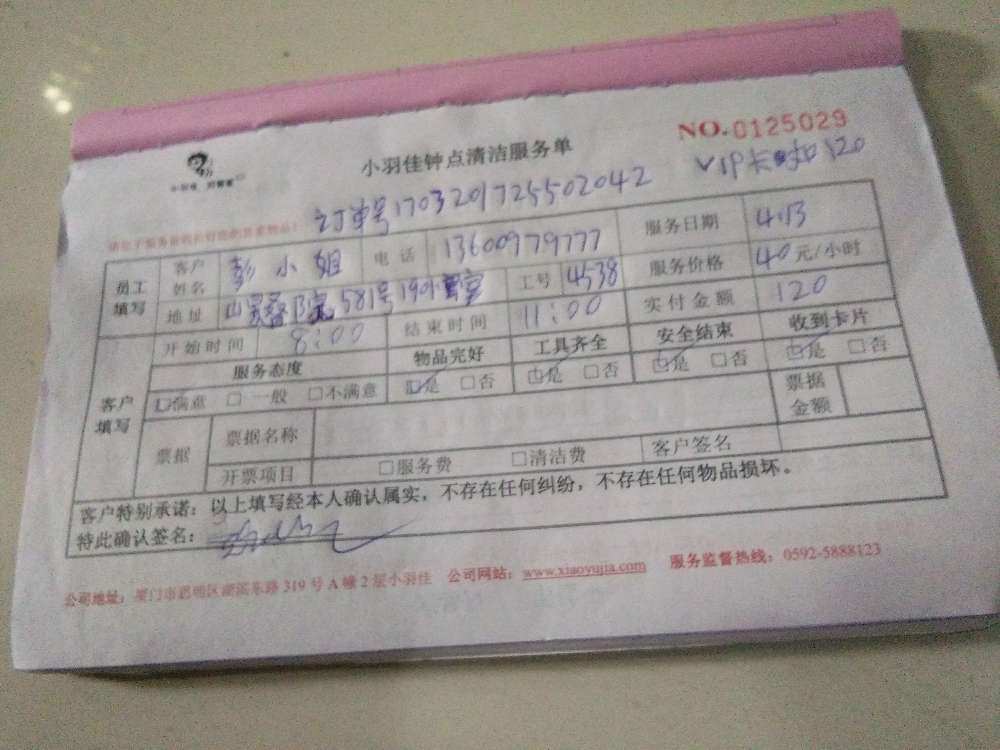 NO.0125029
小羽佳钟点清洁服务单
VIP卡 扣120
订单号170320172550 2042
员工填写 客户姓名 彭小姐 电话 13600979777 服务日期 4.13
地址 581号 工号 4538 服务价格 40元/小时
开始时间 8:00 结束时间 11:00 实付金额 120
客户填写 服务态度 物品完好 工具齐全 安全结束 收到卡片
□满意 □一般 □不满意 □是 □否 □是 □否 □是 □否 □是 □否
票据 票据名称 票据金额
开票项目 □服务费 □清洁费 客户签名
客户特别承诺：以上填写经本人确认属实，不存在任何纠纷，不存在任何物品损坏。
特此确认签名：
公司地址：厦门市思明区湖滨东路319号A幢2层小羽佳 公司网站：www.xiaoyujia.com 服务监督热线：0592-5888123